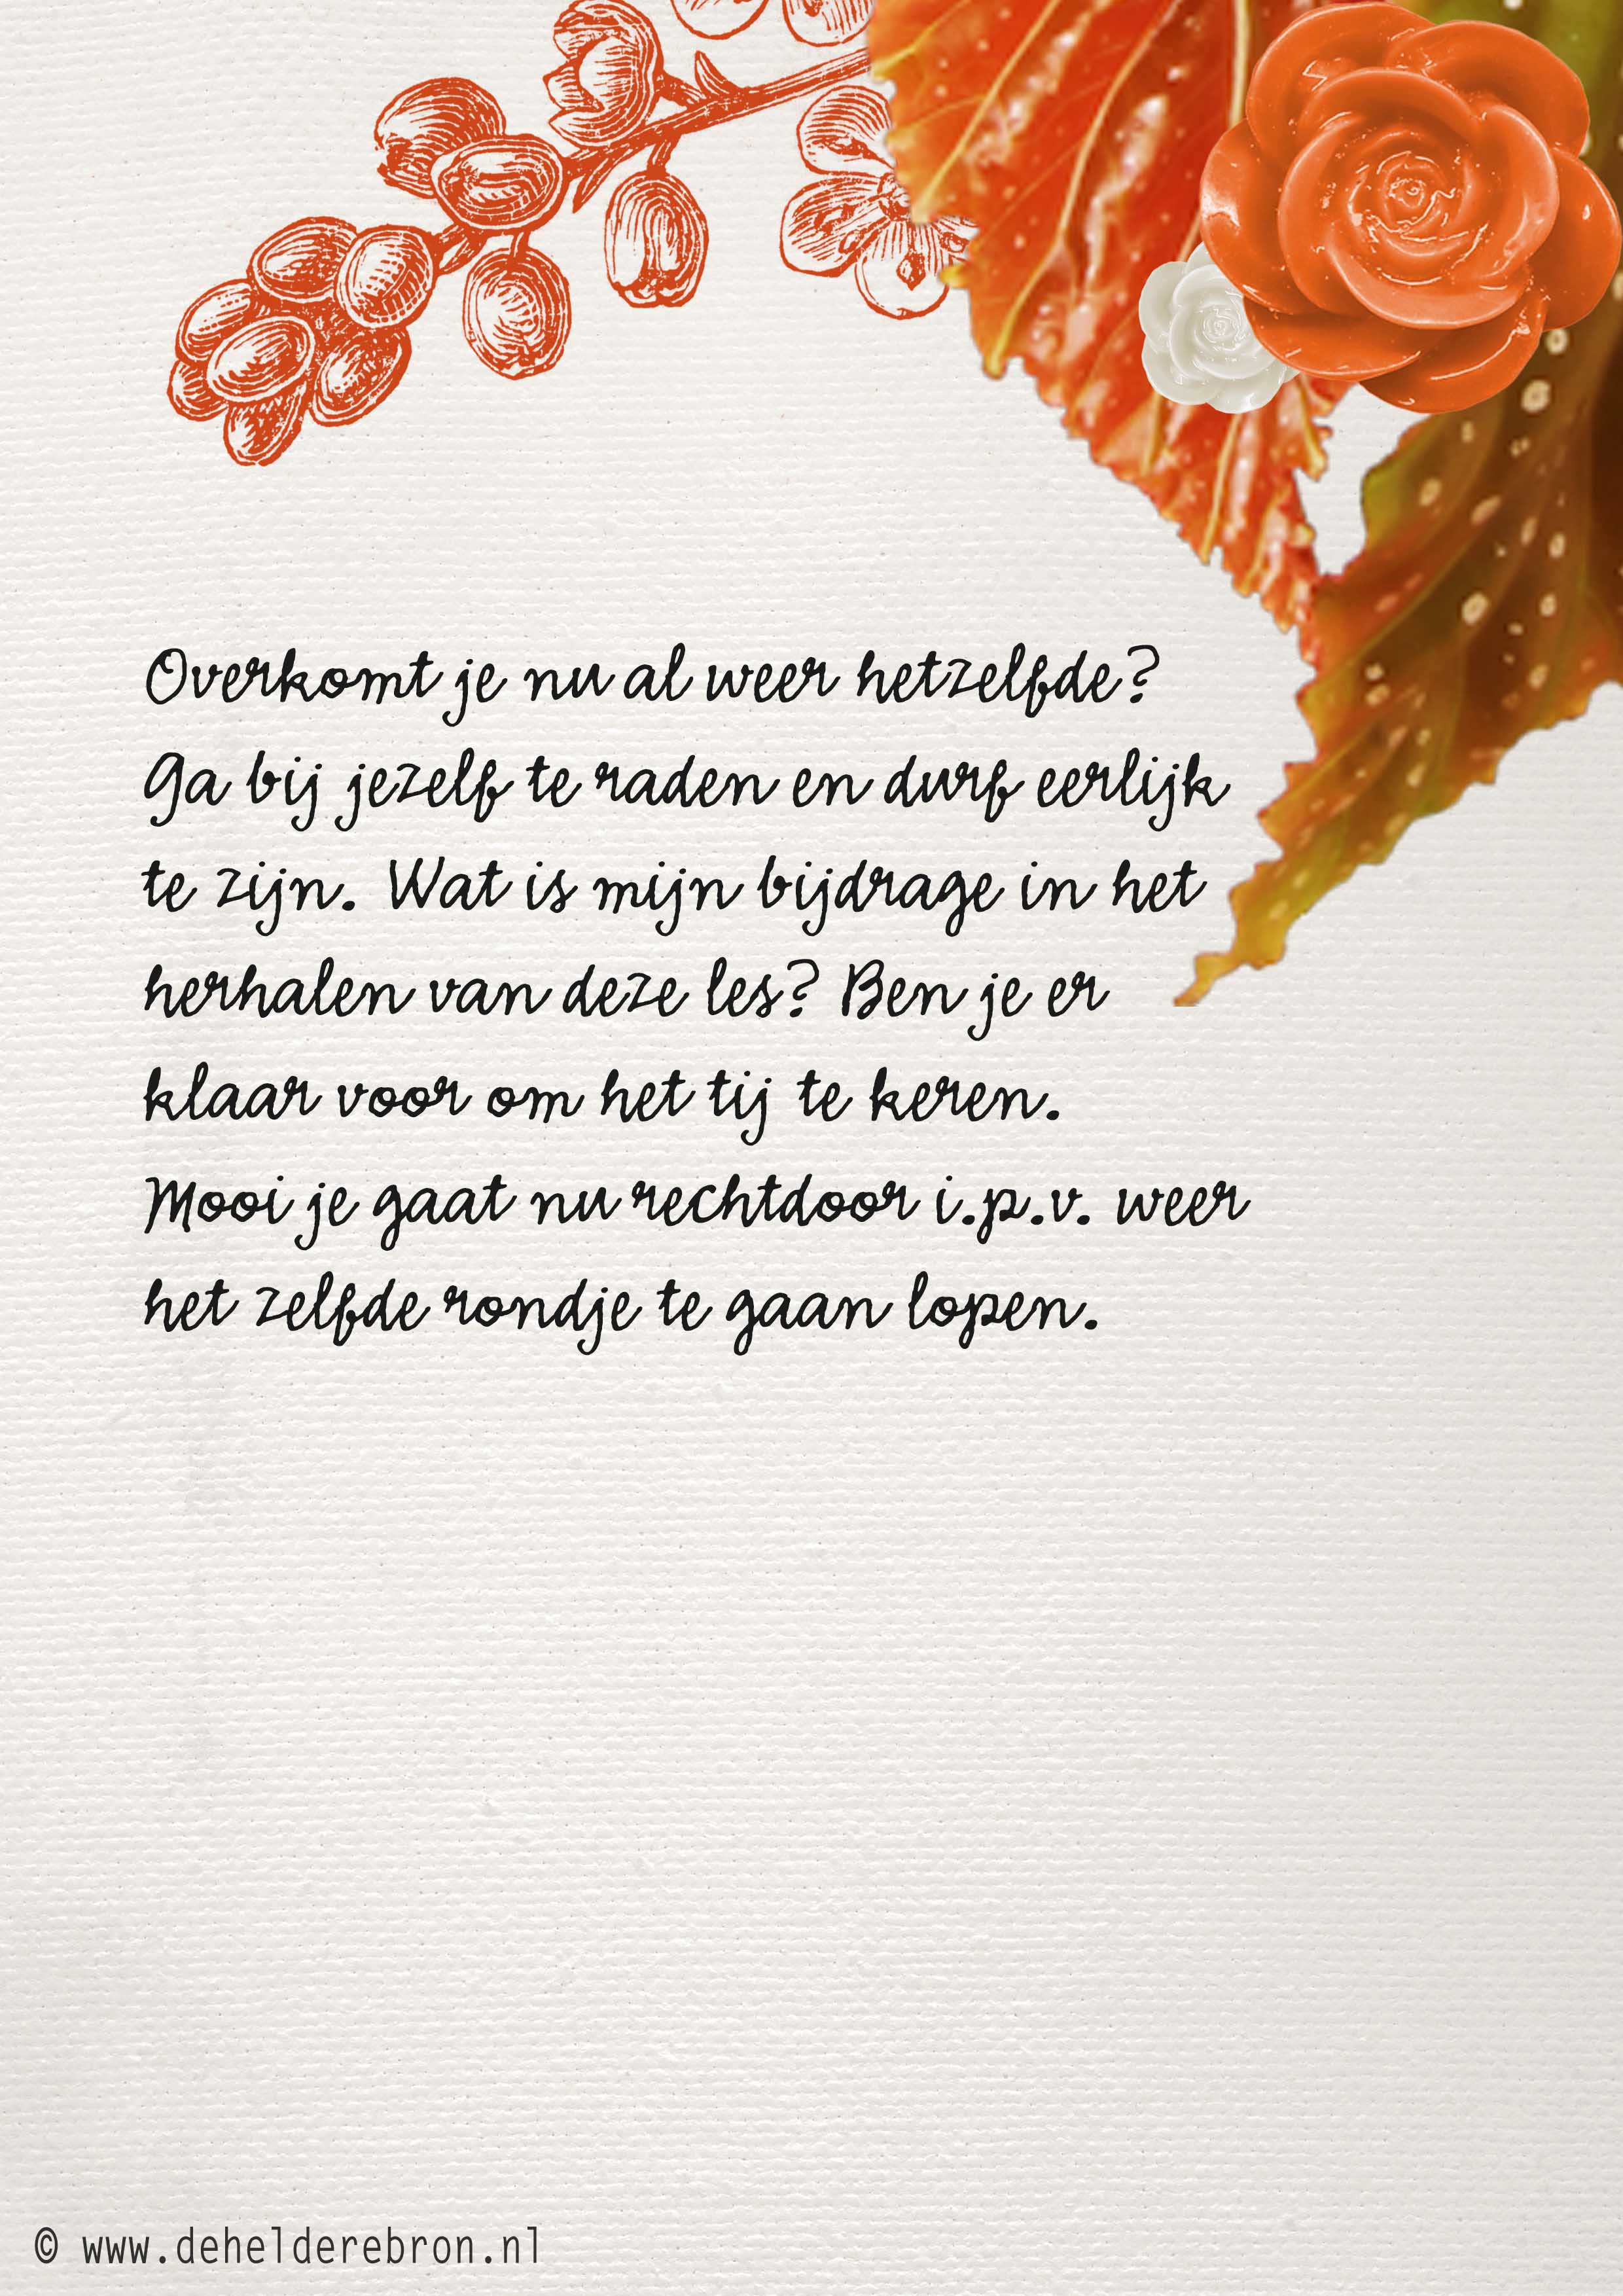 Overkomt je nu al weer hetzelfde?
Ga bij jezelf te raden en durf eerlijk
te zijn. Wat is mijn bijdrage in het
herhalen van deze les? Ben je er
klaar voor om het tij te keren.
Mooi je gaat nu rechtdoor i.p.v. weer
het zelfde rondje te gaan lopen.
© www.dehelderebron.nl